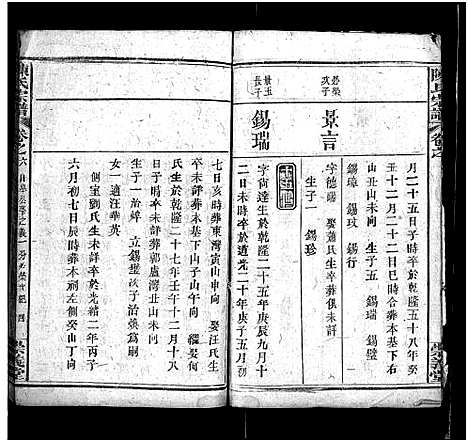 陳氏宗譜
月二十五日子時卒於乾隆五十八年癸
丑十二月二十二日巳時合葬本基下右
山丑山未向 生子五 錫瑞 錫璧
錫璋 錫玟 錫行
景言
字德馨 娶蕭氏生卒俱未詳
生子一 錫珍
錫瑞
景玉
長子
字尚達生於乾隆二十五年庚辰九月十
二日未時卒於道光二十年庚子五月初
六日辰時葬東灣寅山申向 娶汪氏生
卒未詳葬本基下山子山午向 繼娶何
氏生於乾隆二十七年壬午十二月十八
日子時卒未詳葬郭盧灣丑山未向
子一治焯 立錫璧次子治煥爲嗣
女一適汪華英
側室劉氏生未詳卒於光緒二年丙子
六月初七日辰時葬本祠左側癸山丁向
陳氏宗譜